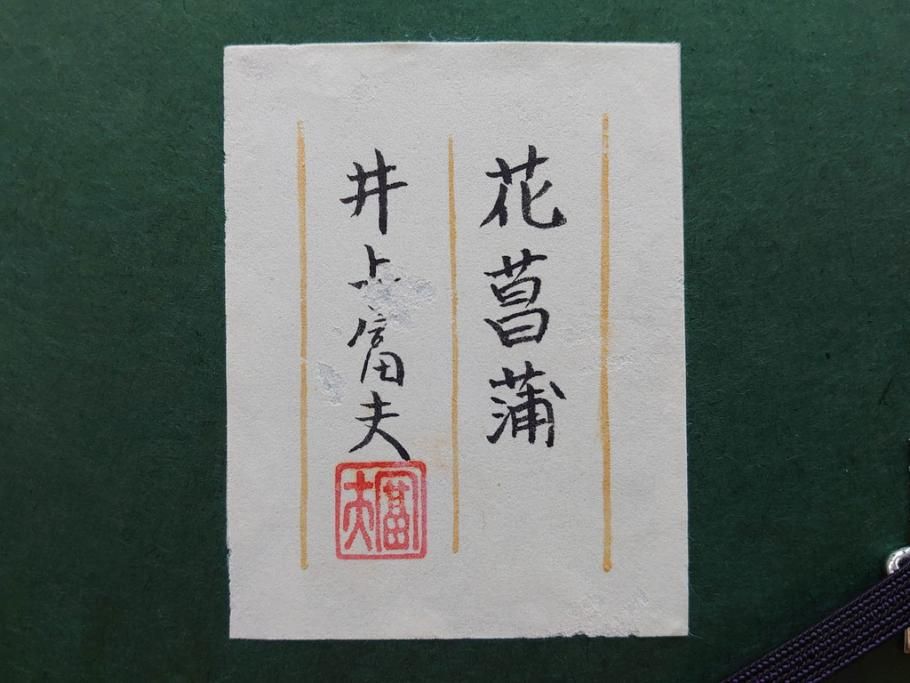 花菖蒲
井上富夫
富夫